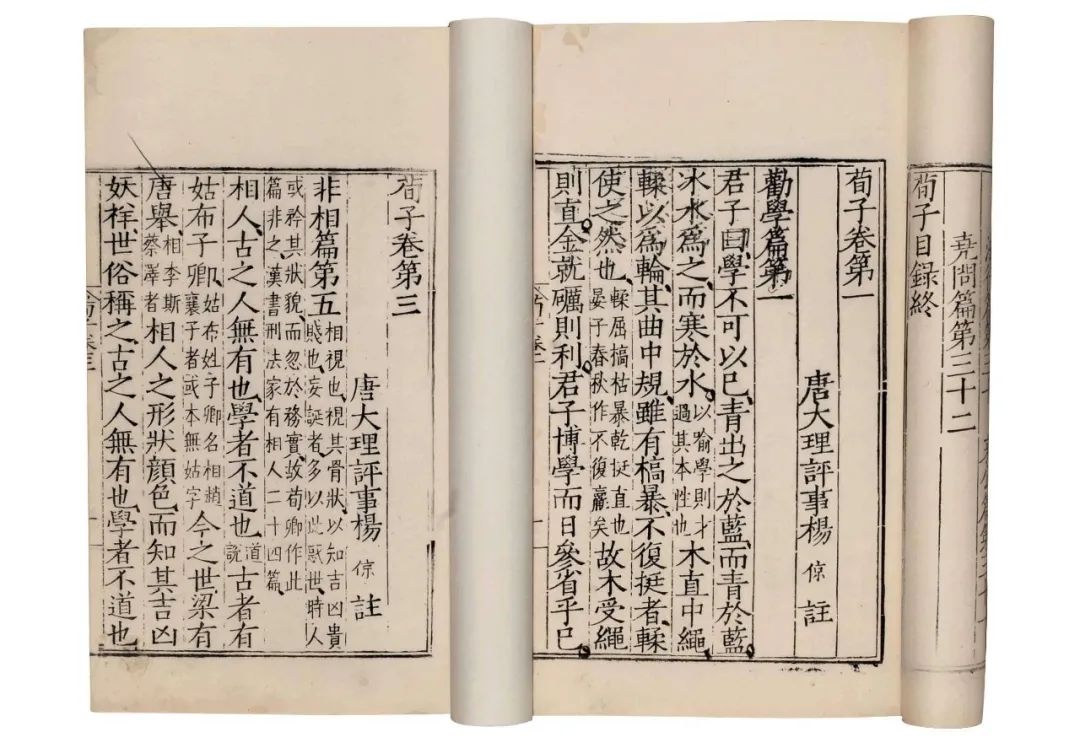 堯問篇第三十二
荀子目録終
荀子卷第一
唐大理評事楊 倞 註
勸學篇第一
君子曰學不可以已、青出之於藍、而青於藍。
冰水爲之、而寒於水。以喻學則才過其本性也木直中繩、
輮以爲輪、其曲中規、雖有槁暴、不復挺者、輮
使之然也、輮屈槁枯暴乾挺直也晏子春秋作不復羸矣故木受繩
則直、金就礪則利、君子博學而日參省乎已
荀子卷第三
唐大理評事楊 倞 註
非相篇第五相視也、視其骨狀以知吉凶貴賤也、妄誕者多以此惑世、時人
或矜其狀貌、而忽於務實、故荀卿作此篇非之、漢書刑法家有相人二十四篇、
相人、古之人無有也、學者不道也、道說古者有
姑布子卿、姑布姓子卿名相趙襄子者或本無姑字今之世、梁有
唐舉、相李斯蔡澤者相人之形狀顏色而知其吉凶
妖祥、世俗稱之、古之人無有也、學者不道也